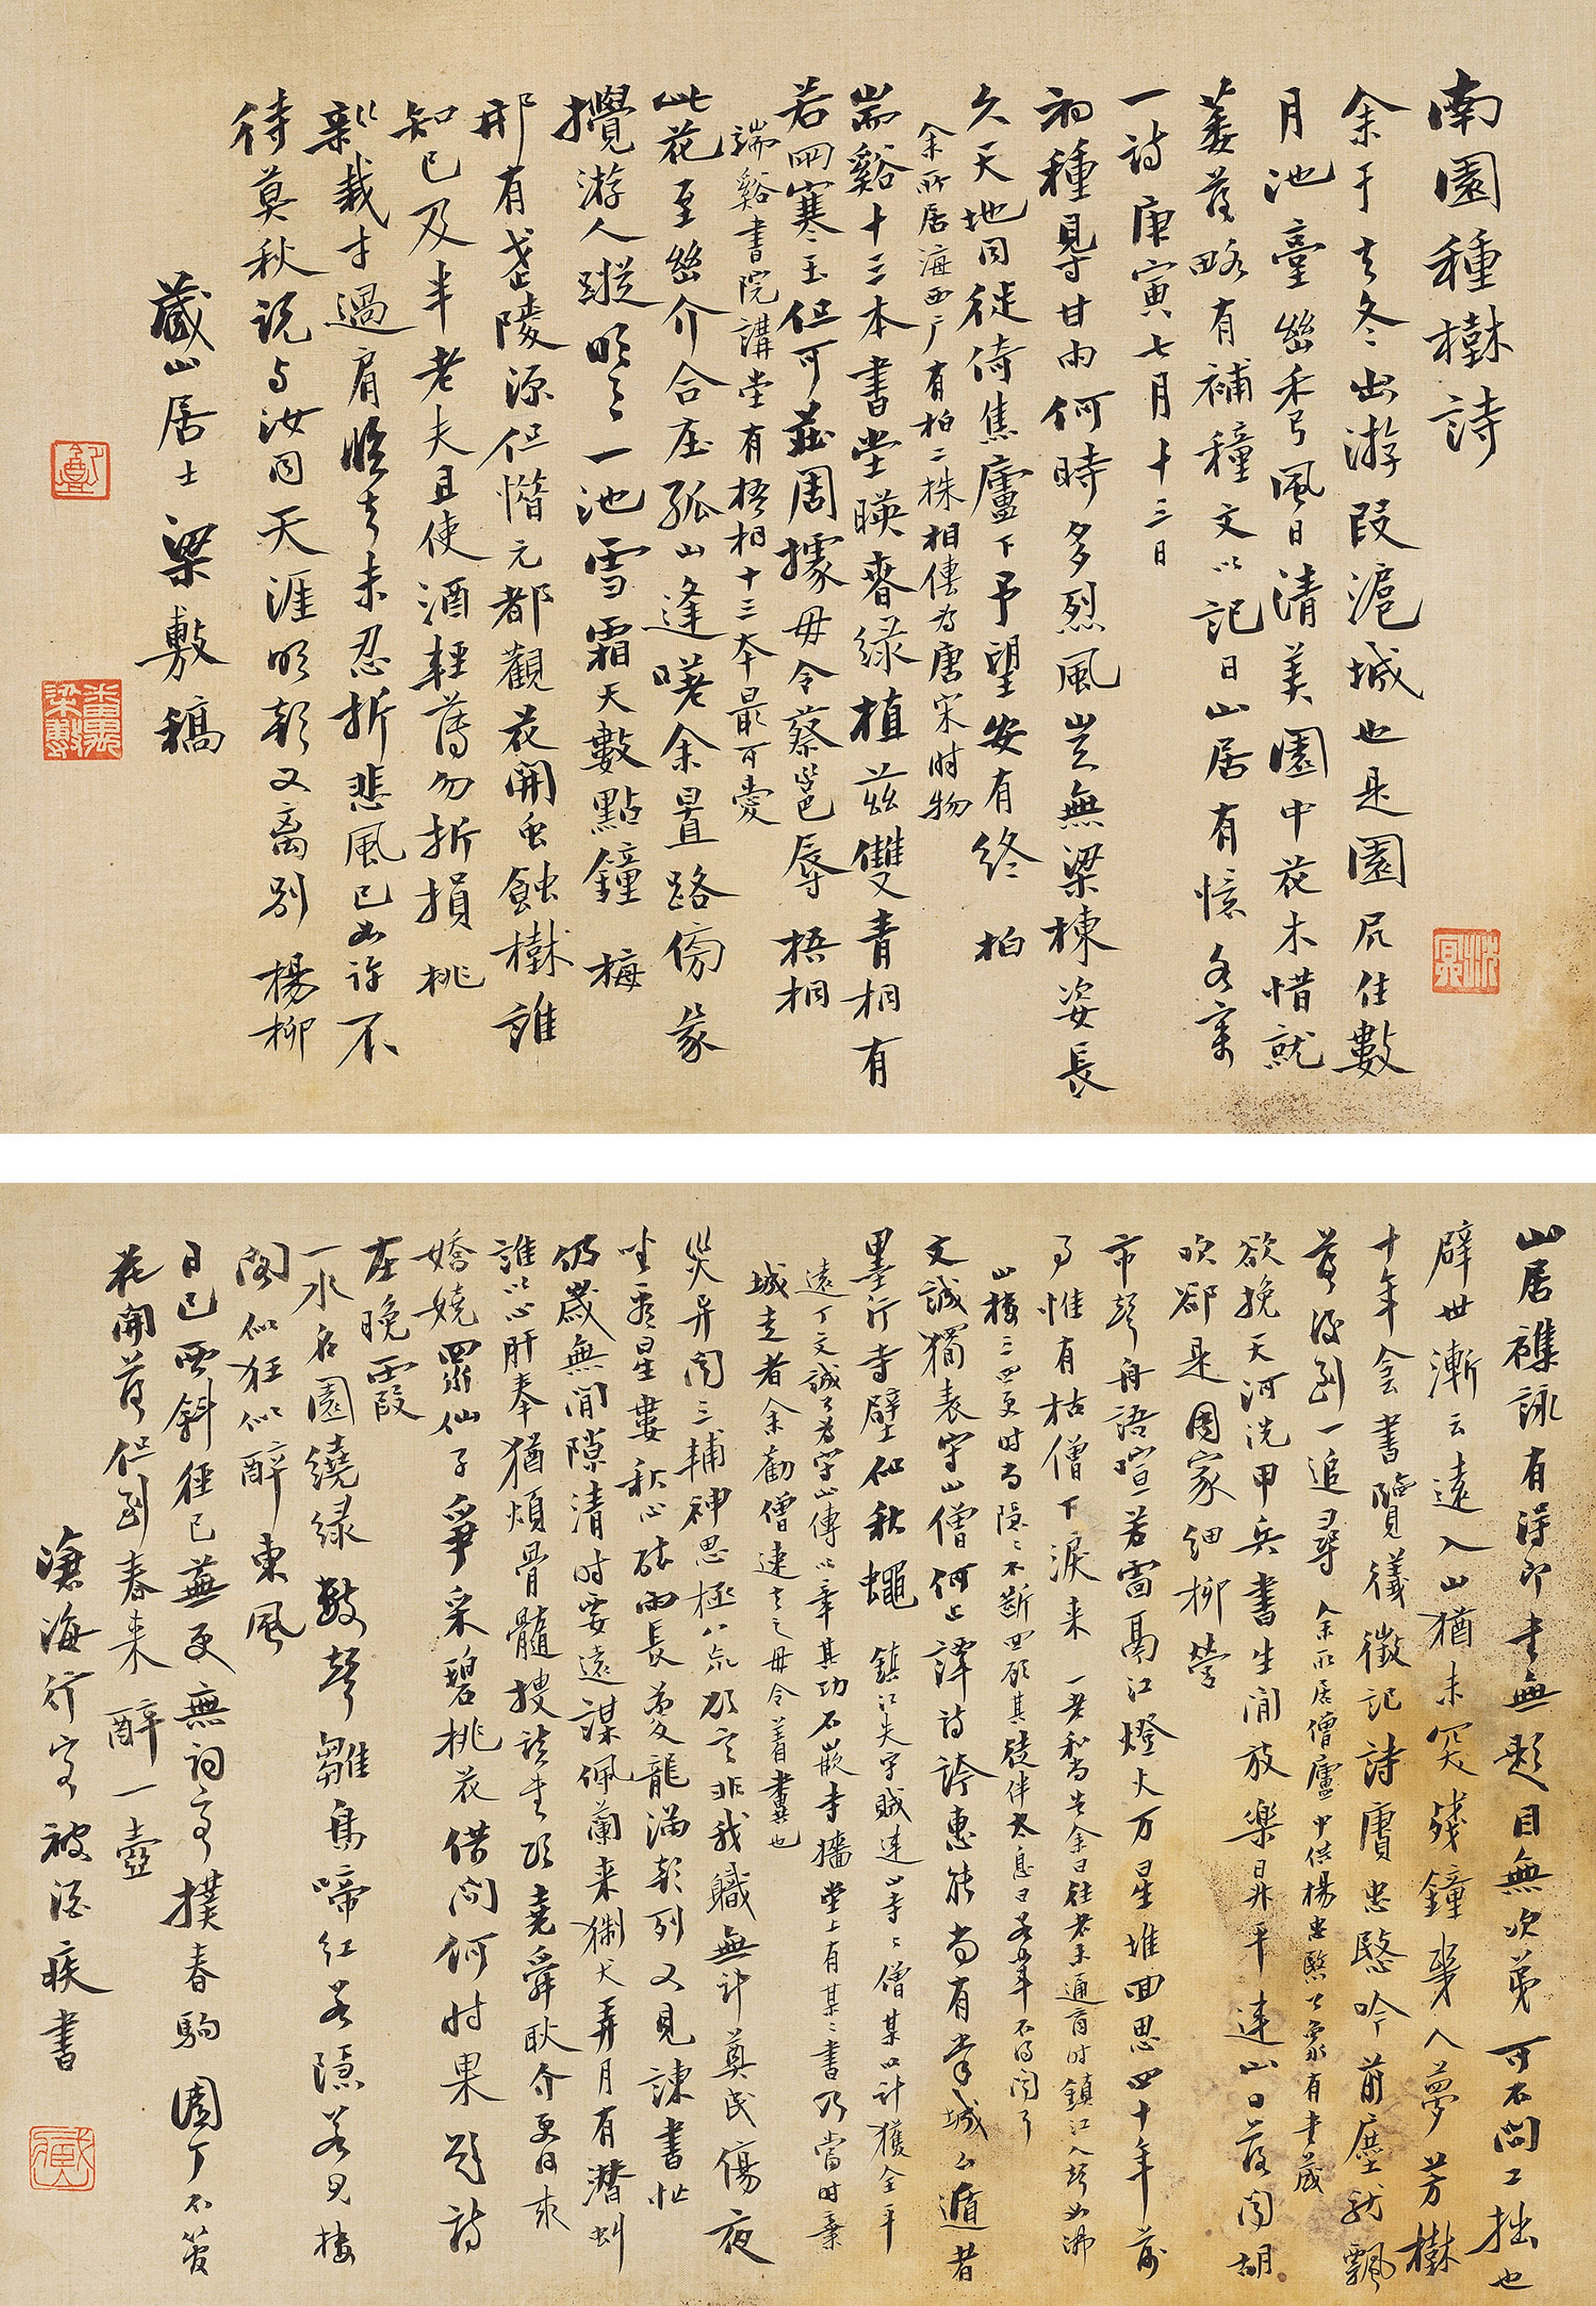 南園種樹詩
余于去冬出游段滬城也是園凥住數
月池臺幽禾弓風日清美園中花木惜就
萎落略有補種文以記日山居有憶各寄
一詩庚寅七月十三日
初種得甘雨何時多烈風豈無梁棟姿長
久天地同徙倚焦廬下予望安有終 柏
余所居海西广有柏二株相傳為唐宋時物
端谿十三本書堂暎眷綠植茲雙青桐有
若兩寒玉但可莊周據毋令蔡邕辱 梧桐
端谿書院講堂有梧桐十三本最可愛
此花至幽介合在孤山逢嗟余置路傍蒙
攪游人蹤明明一池雪霜天數點鐘 梅
那有武陵源但惜元都觀花開虫蝕樹誰
知已及半老夫且使酒輕薄勿折損 桃
新栽才過肩臨去未忍折悲風已如許不
待莫秋說與汝同天涯明朝又离別 楊柳
藏山居士梁敷稿
山居襍詠有得即書無題目無次第可不問工拙也
辟世漸云遠入山猶未深殘鐘發人夢芳樹
十年舍書覽儀徵記詩賡忠愍吟前塵就飄
落後到一追尋 余所居僧廬中供楊忠愍公象有書藏
欲挽天河洗甲兵書生閒放樂昇平連山日落聞胡
吹卻是國家細柳營
市聲舟語喧若雷鬲江燈火万星堆回思四十年前
事惟有枯僧下淚來 一老和尚告余曰往者未通商時鎮江人聲如沸
山樓三四更時尚隱隱不斷回顧其徒伴太息曰若輩不得聞了
文誠獨表守山僧何止譚詩誇惠能尚有掌城公遁者
墨行寺壁似秋蠅 鎮江失守賊連山寺寺僧某以計獲全平
遠丁文誠公為守山傳以章其功石嵌寺牆堂上有某某書乃當時棄
城走者余勸僧連去之毋令着糞也
災异聞三輔神思極八氛顧言非我職無計奠民傷夜
坐看星婁秋心破雨長夔龍滿朝列又見諫書忙
仍歲無閒隙清時要遠謀佩蘭来猘犬弄月有潛虯
誰以心肝奉猶煩骨髓搜讀書頌堯舜耿介更何求
嬌嬈眾仙子爭采碧桃花借問何时果足詩
在晚霞
一水名園繞綠 數聲雛鳥啼紅若隱若見樓
閣似狂似醉東風
日已西斜徑已蕪更無詞客撲春駒園丁不管
花開落但到春来醉一壺
滄海行客被酒疾書